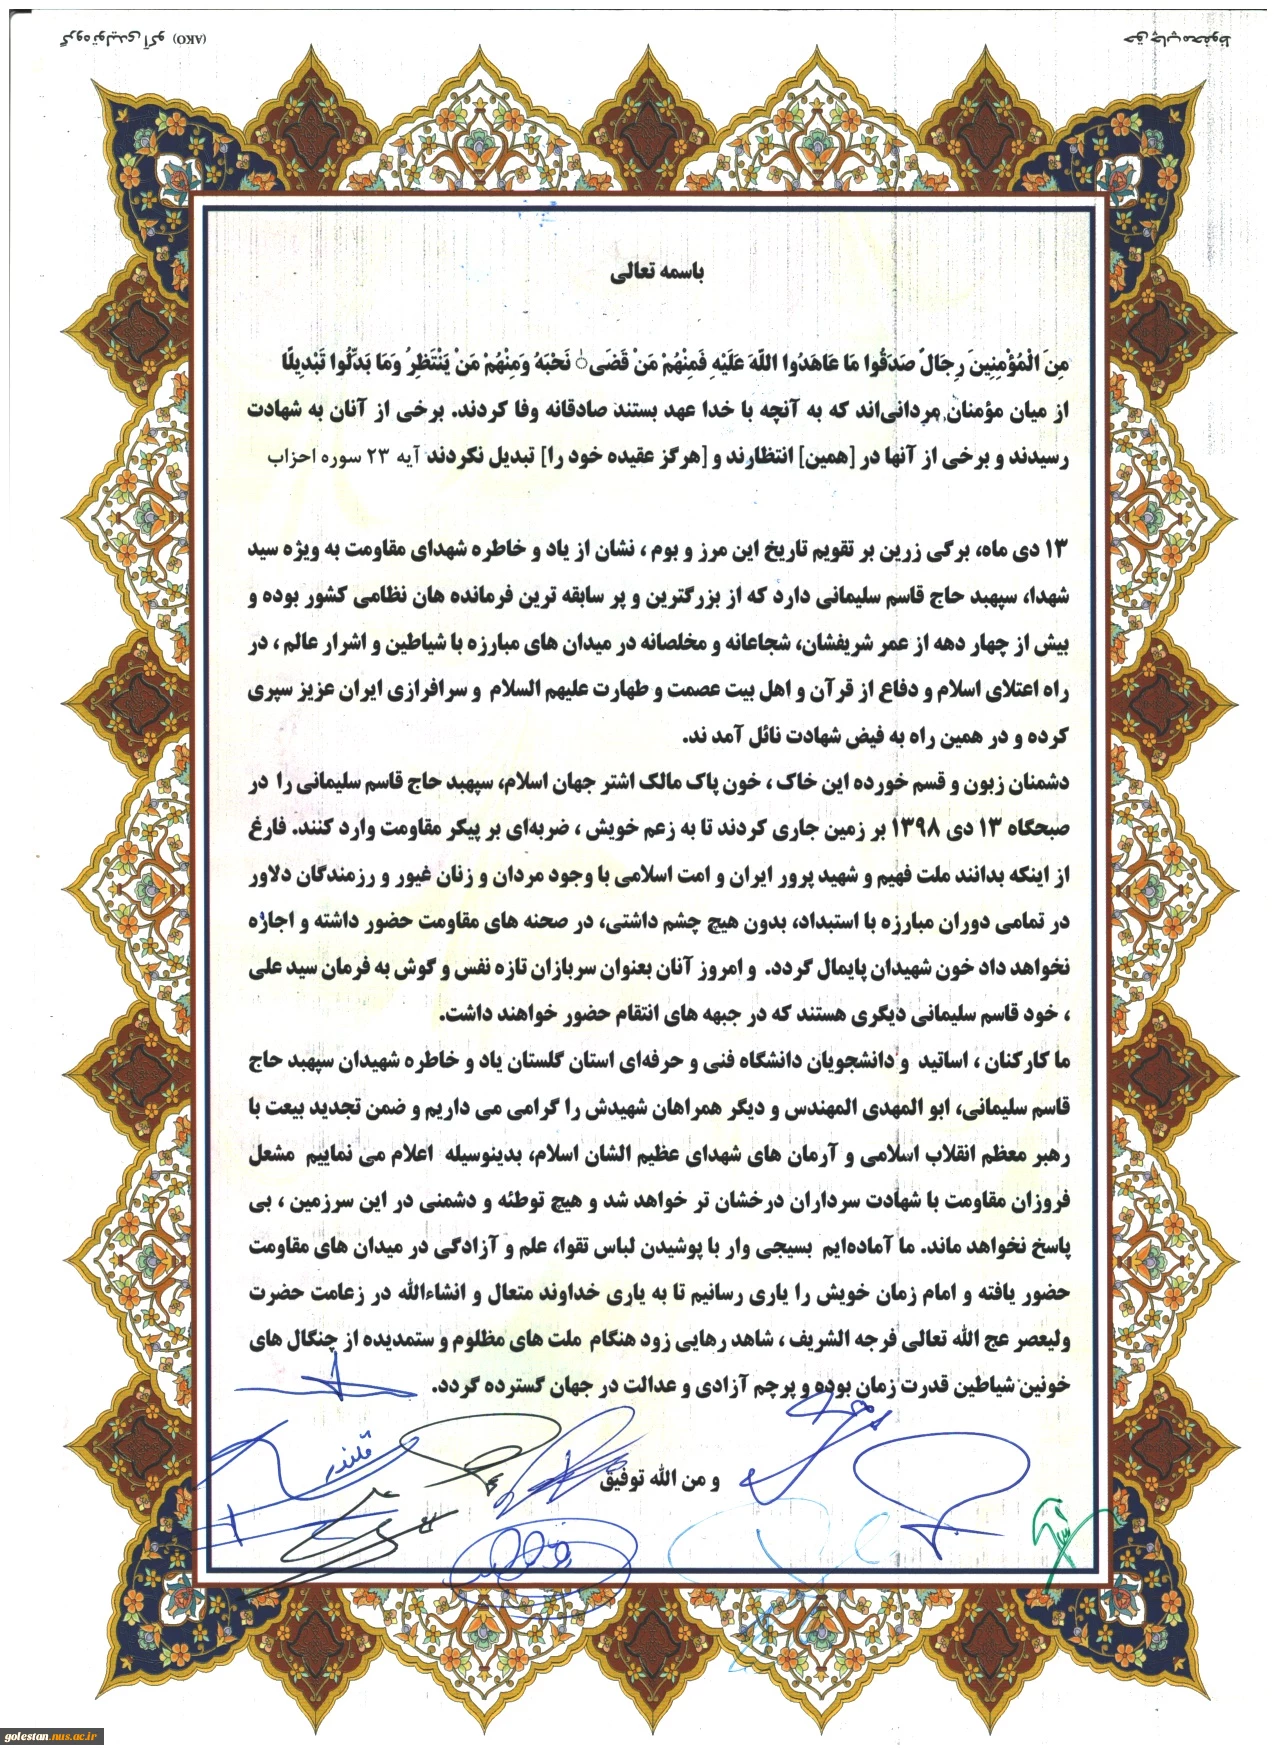 گروه تولیدی آکو (AKO)
حق چاپ محفوظ
باسمه تعالی
مِنَ الْمُؤْمِنِینَ رِجَالٌ صَدَقُوا مَا عَاهَدُوا اللَّهَ عَلَیْهِ فَمِنْهُمْ مَنْ قَضَىٰ نَحْبَهُ وَمِنْهُمْ مَنْ یَنْتَظِرُ وَمَا بَدَّلُوا تَبْدِیلًا
از میان مؤمنان مردانی‌اند که به آنچه با خدا عهد بستند صادقانه وفا کردند. برخی از آنان به شهادت
رسیدند و برخی از آنها در [همین] انتظارند و [هرگز عقیده خود را] تبدیل نکردند آیه ۲۳ سوره احزاب
۱۳ دی ماه، برگی زرین بر تقویم تاریخ این مرز و بوم ، نشان از یاد و خاطره شهدای مقاومت به ویژه سید
شهدا، سپهبد حاج قاسم سلیمانی دارد که از بزرگترین و پر سابقه ترین فرمانده هان نظامی کشور بوده و
بیش از چهار دهه از عمر شریفشان، شجاعانه و مخلصانه در میدان های مبارزه با شیاطین و اشرار عالم ، در
راه اعتلای اسلام و دفاع از قرآن و اهل بیت عصمت و طهارت علیهم السلام و سرافرازی ایران عزیز سپری
کرده و در همین راه به فیض شهادت نائل آمد ند.
دشمنان زبون و قسم خورده این خاک ، خون پاک مالک اشتر جهان اسلام، سپهبد حاج قاسم سلیمانی را در
صبحگاه ۱۳ دی ۱۳۹۸ بر زمین جاری کردند تا به زعم خویش ، ضربه‌ای بر پیکر مقاومت وارد کنند. فارغ
از اینکه بدانند ملت فهیم و شهید پرور ایران و امت اسلامی با وجود مردان و زنان غیور و رزمندگان دلاور
در تمامی دوران مبارزه با استبداد، بدون هیچ چشم داشتی، در صحنه های مقاومت حضور داشته و اجازه
نخواهد داد خون شهیدان پایمال گردد. و امروز آنان بعنوان سربازان تازه نفس و گوش به فرمان سید علی
، خود قاسم سلیمانی دیگری هستند که در جبهه های انتقام حضور خواهند داشت.
ما کارکنان ، اساتید و دانشجویان دانشگاه فنی و حرفه‌ای استان گلستان یاد و خاطره شهیدان سپهبد حاج
قاسم سلیمانی، ابو المهدی المهندس و دیگر همراهان شهیدش را گرامی می داریم و ضمن تجدید بیعت با
رهبر معظم انقلاب اسلامی و آرمان های شهدای عظیم الشان اسلام، بدینوسیله اعلام می نماییم مشعل
فروزان مقاومت با شهادت سرداران درخشان تر خواهد شد و هیچ توطئه و دشمنی در این سرزمین ، بی
پاسخ نخواهد ماند. ما آماده‌ایم بسیجی وار با پوشیدن لباس تقوا، علم و آزادگی در میدان های مقاومت
حضور یافته و امام زمان خویش را یاری رسانیم تا به یاری خداوند متعال و انشاءالله در زعامت حضرت
ولیعصر عج الله تعالی فرجه الشریف ، شاهد رهایی زود هنگام ملت های مظلوم و ستمدیده از چنگال های
خونین شیاطین قدرت زمان بوده و پرچم آزادی و عدالت در جهان گسترده گردد.
و من الله توفیق
قلندر
golestan.nus.ac.ir